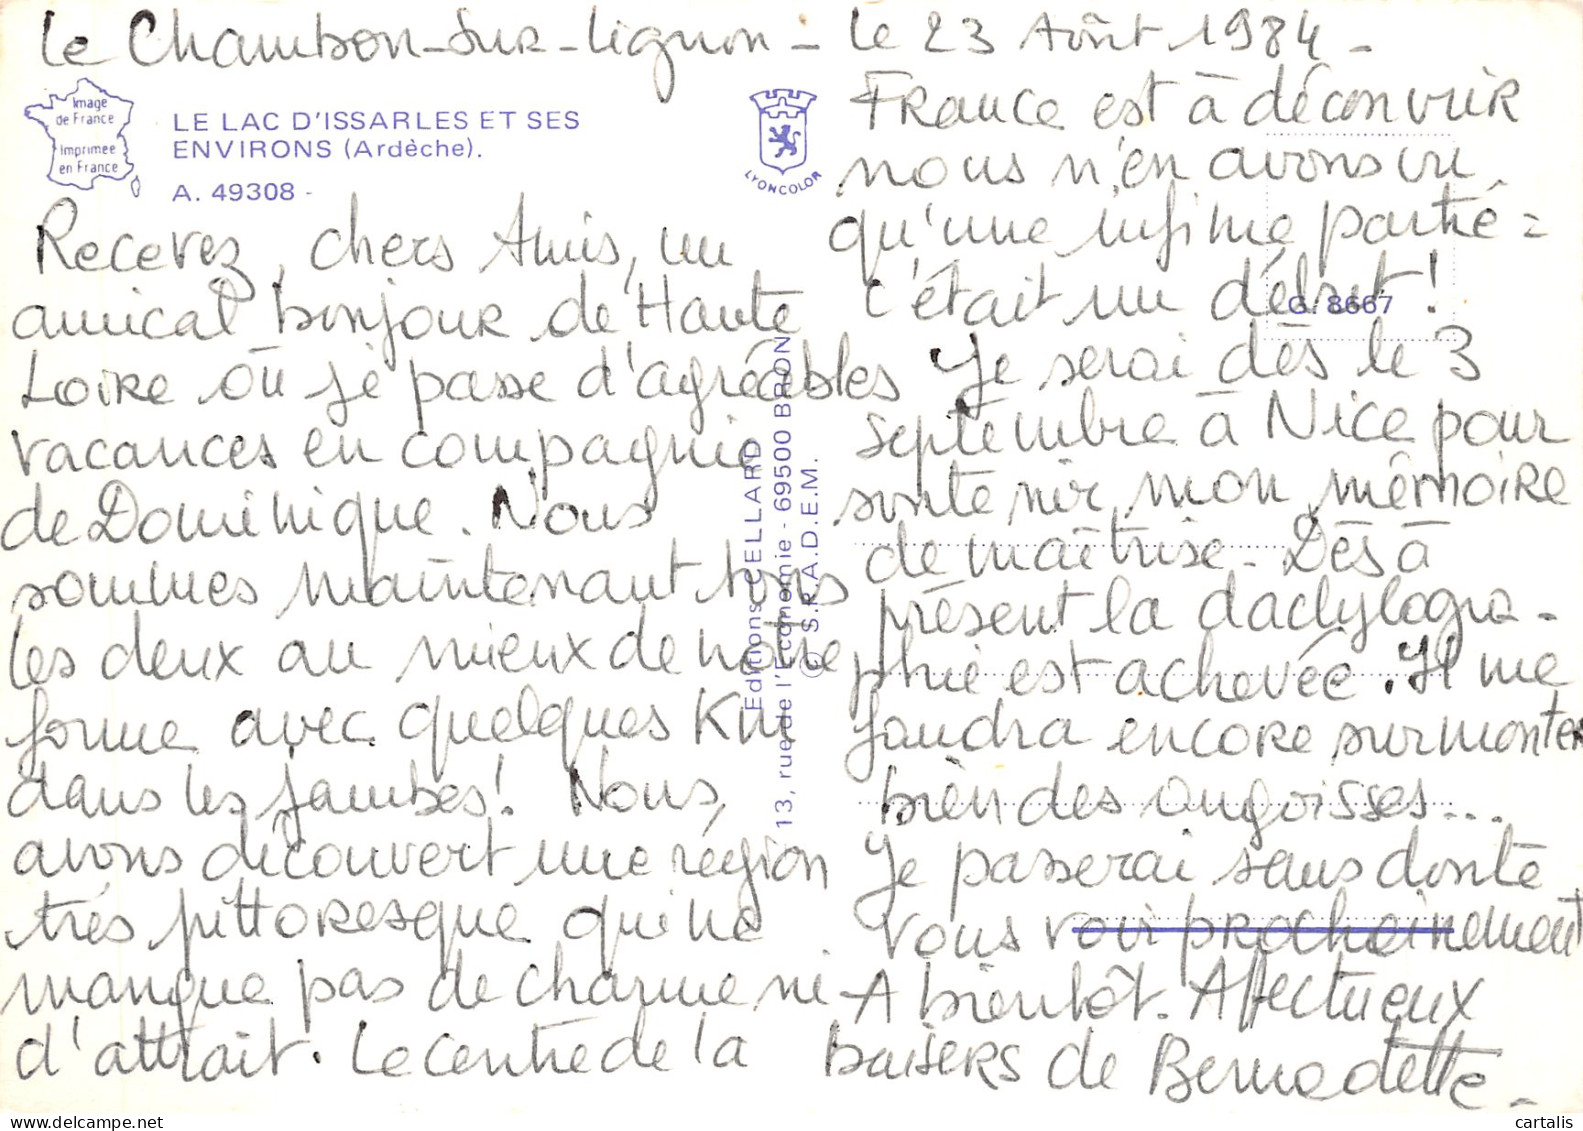 Le Chambon-sur-Lignon - le 23 Août 1984 -
Image
de France
Imprimée
en France
LE LAC D'ISSARLES ET SES
ENVIRONS (Ardèche).
A. 49308 -
LYONCOLOR
Recevez, chers Amis, un
amical bonjour de Haute
Loire où je passe d'agréables
vacances en compagnie
de Dominique. Nous
sommes maintenant tous
les deux au mieux de notre
forme avec quelques Km
dans les jambes! Nous
avons découvert une région
très pittoresque qui ne
manque pas de charme ni
d'attrait. Le centre de la
Editions CELLARD
13, rue de l'Economie - 69500 BRON
© S.P.A.D.E.M.
France est à découvrir
nous n'en avons vu
qu'une infime partie =
c'était un début!
G. 8667
Je serai dès le 3
septembre à Nice pour
soutenir mon mémoire
de maîtrise. Dès à
présent la dactylogra-
phie est achevée. Il me
faudra encore surmonter
bien des angoisses...
Je passerai sans doute
vous voir prochainement
A bientôt. Affectueux
baisers de Bernadette -
cartalis